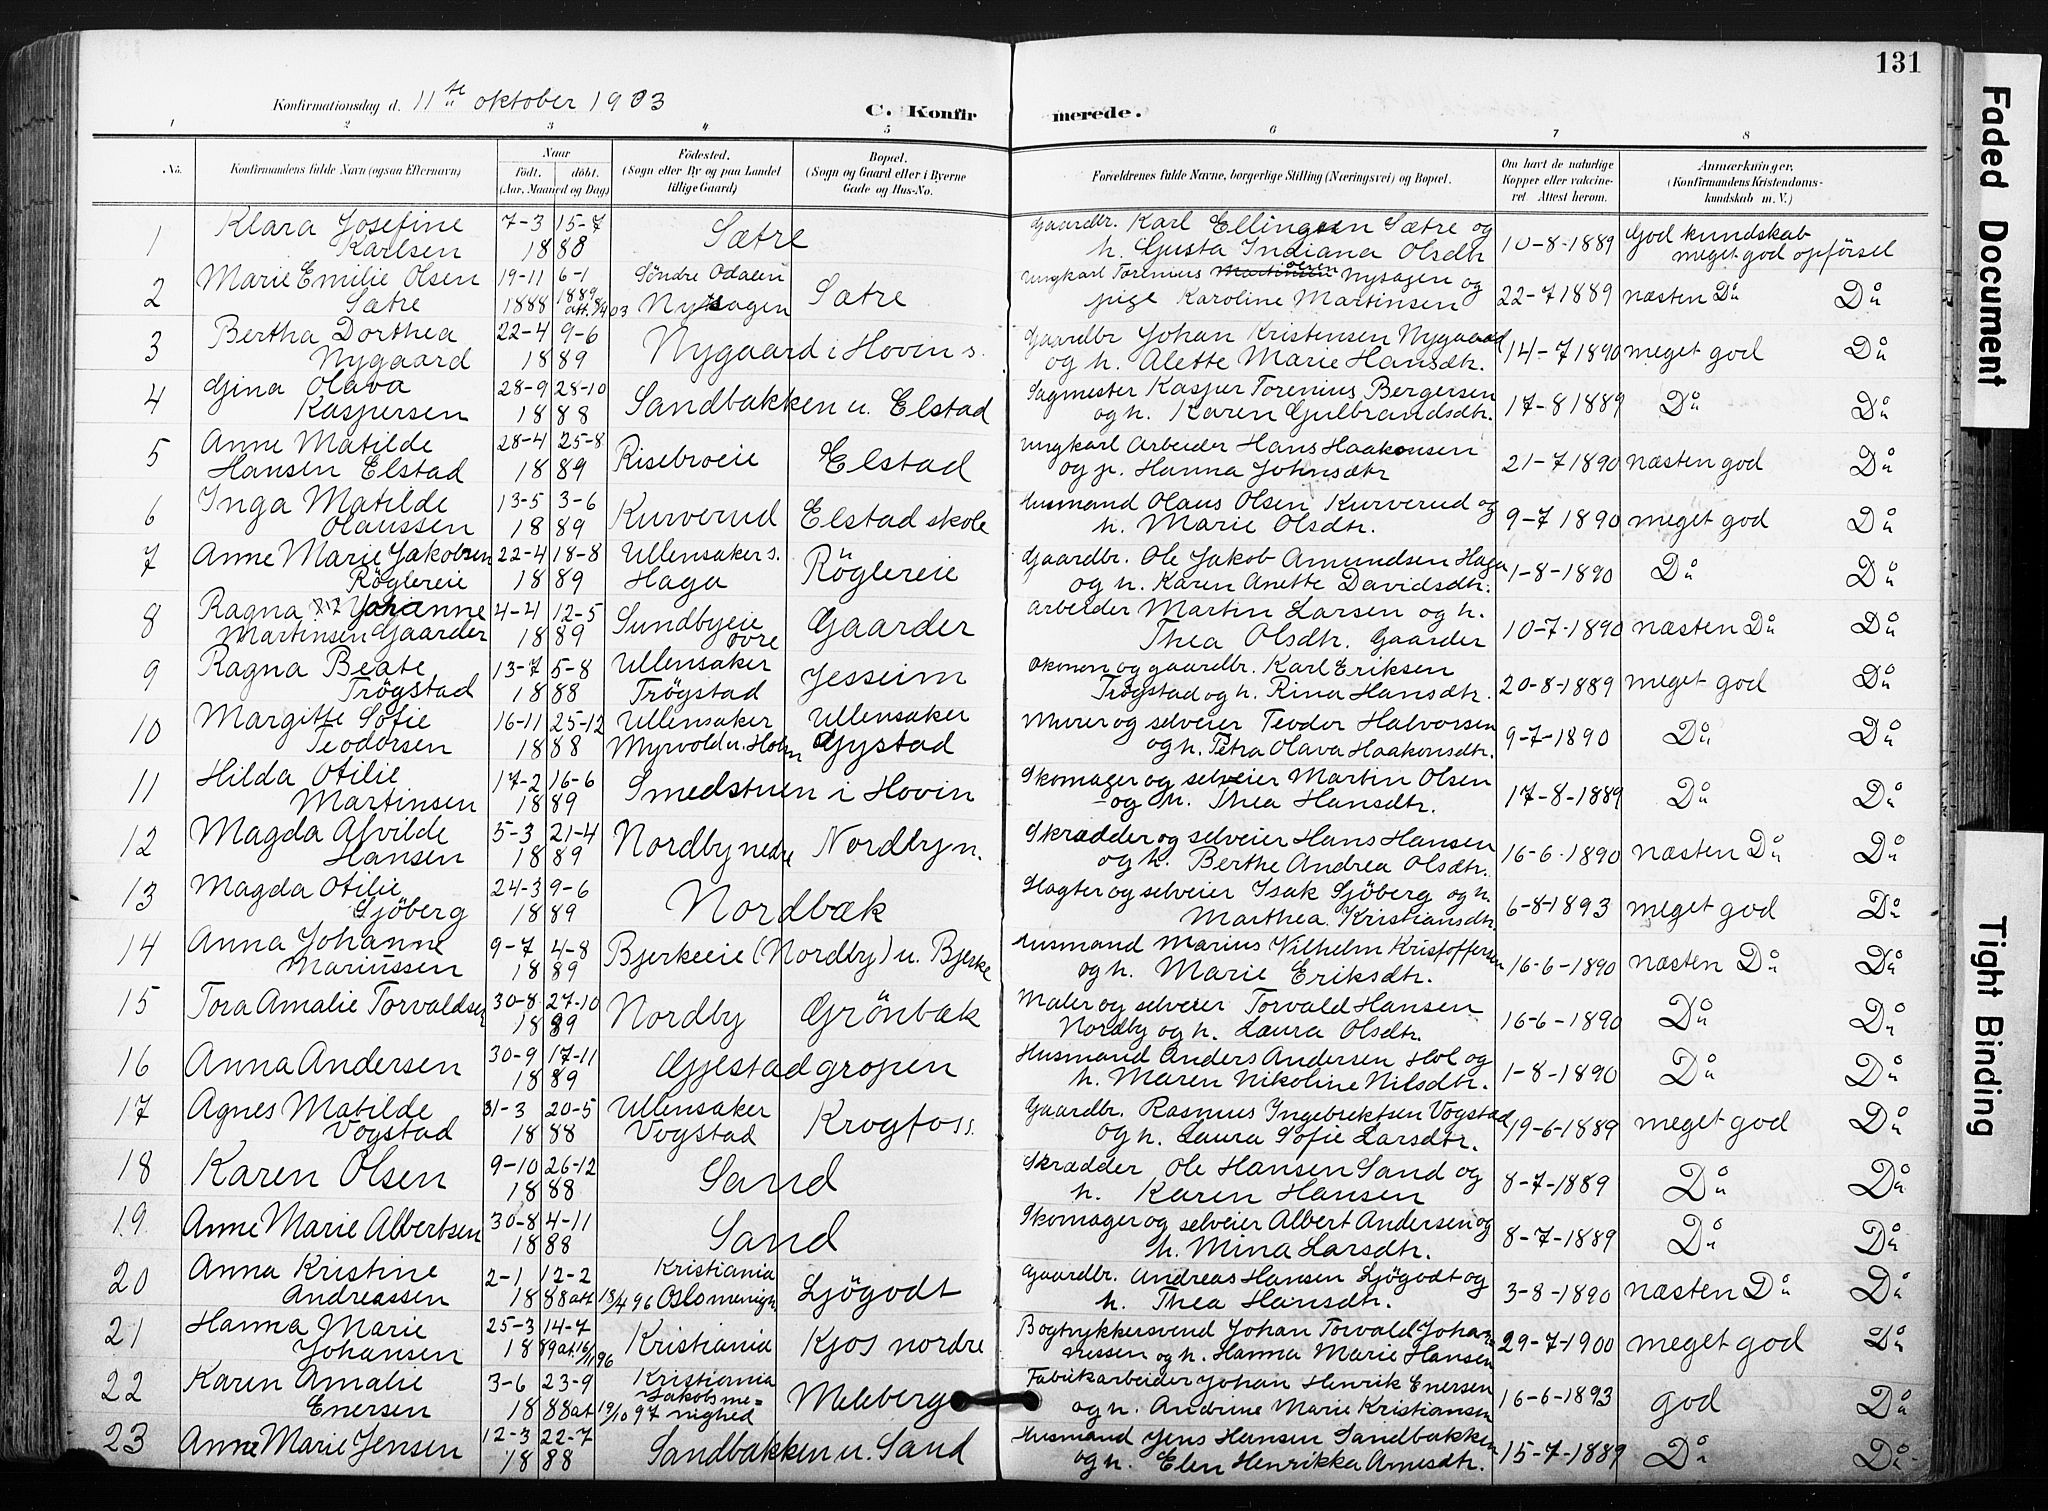 131
Konfirmationsdag d. 11te oktober 1903
C. Konfirmerede.
1 2 3 4 5 6 7 8
No.
Konfirmandens fulde Navn (ogsaa Efternavn)
Naar
födt. döbt.
(Aar, Maaned og Dag)
Födested.
(Sogn eller By og paa Landet
tillige Gaard)
Bopæl.
(Sogn og Gaard eller i Byerne
Gade og Hus-No.
Forældrenes fulde Navne, borgerlige Stilling (Næringsvei) og Bopæl.
Om havt de naturlige
Kopper eller vakcine-
ret. Attest herom.
Anmærkninger,
(Konfirmandens Kristendoms-
kundskab m. V.)
1 Klara Josefine 7-3 15-7 Sætre Gaardbr. Karl Ellingsen Sætre og 10-8-1889 God kundskab
Karlsen 1888 h. Gusta Indiana Olsdtr meget god opförsel
2 Marie Emilie Olsen 19-11 6-1 Söndre Odalen Sætre ungkarl Torenius Nysagen og 22-7 1889 næsten Do Do
Sætre 1888 1889 att. 8/4 03 Nysagen pige Karoline Martinsen
3 Bertha Dorthea 22-4 9-6 Nygaard i Hovin s. Gaardbr Johan Kristensen Nygaard 14-7 1890 meget god Do
Nygaard 1889 og h. Alette Marie Hansdtr.
4 Gina Olava 28-9 28-10 Sandbakken u. Elstad Sagmester Kasper Torenius Bergersen 17-8 1889 Do Do
Kaspersen 1888 og h. Karen Gulbrandsdtr.
5 Anne Matilde 28-4 25-8 Risebroeie Elstad ungkarl Arbeider Hans Haakonsen 21-7 1890 næsten god Do
Hansen Elstad 1889 og p. Hanna Johnsdtr
6 Inga Matilde 13-5 3-6 Kurverud Elstad skole husmand Olaus Olsen Kurverud og 9-7 1890 meget god Do
Olaussen 1889 h. Marie Olsdtr.
7 Anne Marie Jakobsen 22-4 18-8 Ullensaker s. Röglereie Gaardbr. Ole Jakob Amundsen Haga 1-8-1890 Do Do
Röglereie 1889 Haga og h. Karen Anette Davidsdtr.
8 Ragna Johanne 4-4 12-5 Sundbyeie Gaarder arbeider Martin Larsen og h. 10-7-1890 næsten Do Do
Martinsen Gaarder 1889 övre Thea Olsdtr. Gaarder
9 Ragna Beate 13-7 5-8 Ullensaker Jesseim Okonom og gaardbr. Karl Eriksen 20-8-1889 meget god Do
Trögstad 1888 Trögstad Trögstad og h. Rina Hansdtr.
10 Margitte Sofie 16-11 25-12 Ullensaker Ullensaker Murer og selveier Teodor Halvorsen 9-7-1890 Do Do
Teodorsen 1888 Myrvold u. Holm Gystad og h. Petra Olava Haakonsdtr.
11 Hilda Otilie 17-2 16-6 Smedstuen i Hovin Skomager og selveier Martin Olsen 17-8-1889 Do Do
Martinsen 1889 og h. Thea Hansdtr.
12 Magda Alvilde 5-3 21-4 Nordby nedre Nordby n. Skrædder og selveier Hans Hansen 16-6-1890 næsten Do Do
Hansen 1889 og h. Berthe Andrea Olsdtr.
13 Magda Otilie 24-3 9-6 Nordbæk Slagter og selveier Isak Sjöberg og h. 6-8-1893 meget god Do
Sjöberg 1889 Marthea Kristiansdtr.
14 Anna Johanne 9-7 4-8 Bjerkeeie (Nordby) u. Bjerke husmand Marius Vilhelm Kristoffersen 16-6-1890 næsten Do Do
Mariussen 1889 og h. Marie Eriksdtr.
15 Tora Amalie Torvaldsen 30-8 27-10 Nordby Grönbæk Maler og selveier Torvald Hansen 16-6-1890 Do Do
1889 Nordby og h. Laura Olsdtr.
16 Anna Andersen 30-9 17-11 Gjestadgropen Husmand Anders Andersen Hol og 1-8-1890 Do Do
1889 h. Maren Nikoline Nilsdtr.
17 Agnes Matilde 31-3 20-5 Ullensaker Krogfoss. Gaardbr. Rasmus Ingebrektsen Vogstad 19-6-1889 meget god Do
Vogstad 1888 Vogstad og h. Laura Sofie Larsdtr.
18 Karen Olsen 9-10 26-12 Sand Skrædder Ole Hansen Sand og 8-7-1889 Do Do
1888 h. Karen Hansen
19. Anne Marie Albertsen 30-8 4-11 Sand Skomager og selveier Albert Andersen og 8-7-1889 Do Do
1888 h. Mina Larsdtr.
20 Anna Kristine 2-1 12-2 Kristiania Ljögodt Gaardbr. Andreas Hansen Ljögodt og 3-8-1890 næsten Do Do
Andreassen 1888 att. 18/4 96 Oslo menigh. h. Thea Hansdtr.
21 Hanna Marie 25-3 14-7 Kristiania Kjos nordre Bogtrykkersvend Johan Torvald Johan 29-7-1900 meget god Do
Johansen 1889 at. 16/11 96 nessen og h. Hanna Marie Hansen
22 Karen Amalie 3-6 23-9 Kristiania Meleberg Fabrikarbeider Johan Henrik Enersen 16-6-1893 god Do
Enersen 1888 at. 19/10 97 Jakobsme= nighed og h. Andrine Marie Kristiansen
23 Anne Marie Jensen 12-3 22-7 Sandbakken u. Sand Husmand Jens Hansen Sandbakken 15-7-1889 Do Do
1888 og h. Elen Henrikka Arnesdtr.
Faded Document
Tight Binding